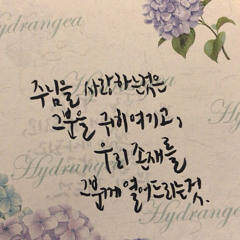 Hydrangea
주님을 사랑하는것은
그분을 귀히여기고,
우리 존재를
Hydrangea
그분께 열어드리는것.
Hydrangea